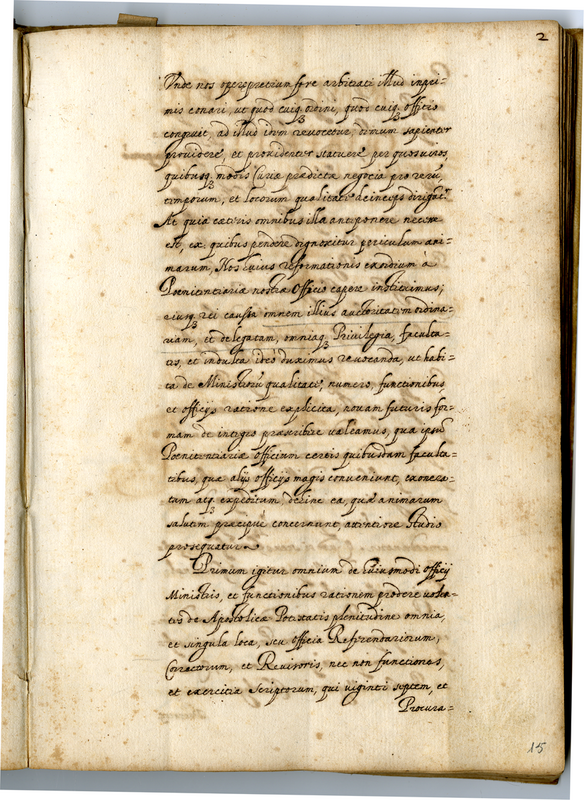 2
Vnde nos operępretium fore arbitrati illud inpri=
mis conari, ut quod cuiq; ordini, quod cuiq; officio
congruit, ad illud ipsum revocetur, dimum sapienter
providere, et providenter statuere per quos viros,
quibusq; modis Curiæ prædictæ negocia pro reru,
temporum, et locorum qualitate deinceps dirigāt.
At quia cæteris omnibus illa anteponere necesse
est, ex quibus pendere dignoscitur periculum ani=
marum, Nos huius reformationis exordium à
Poenitentiariæ nostræ Officio capere instituimus;
eiusq; rei causa omnem illius auctoritatem ordina=
riam, et delegatam, omniaq; Privilegia, faculta=
tes, et indulta ideo duximus revocanda, ut habi=
ta de Ministroru qualitate, numero, functionibus
et officijs ratione explicita, novam futuris for=
mam de integro præscribere valeamus, qua ipsu
Poenitentiariæ officium cereis quibusdam faculta=
tibus, quæ alijs officijs magis conveniunt, exonera=
tam atq; expeditam, deinde ea, quæ animarum
salutem præcipuè concernunt, attentiore studio
prosequatur.
Primum igitur omnium de huiusmodi officij
Ministris, et functionibus rationem prodere volen=
tes de Apostolicæ Potestatis plenitudine omnia,
et singula loca, seu officia Referendariorum,
Correctorum, et Revisoris, nec non functiones,
et exercitia Scriptorum, qui viginti septem, et
Procura=
15